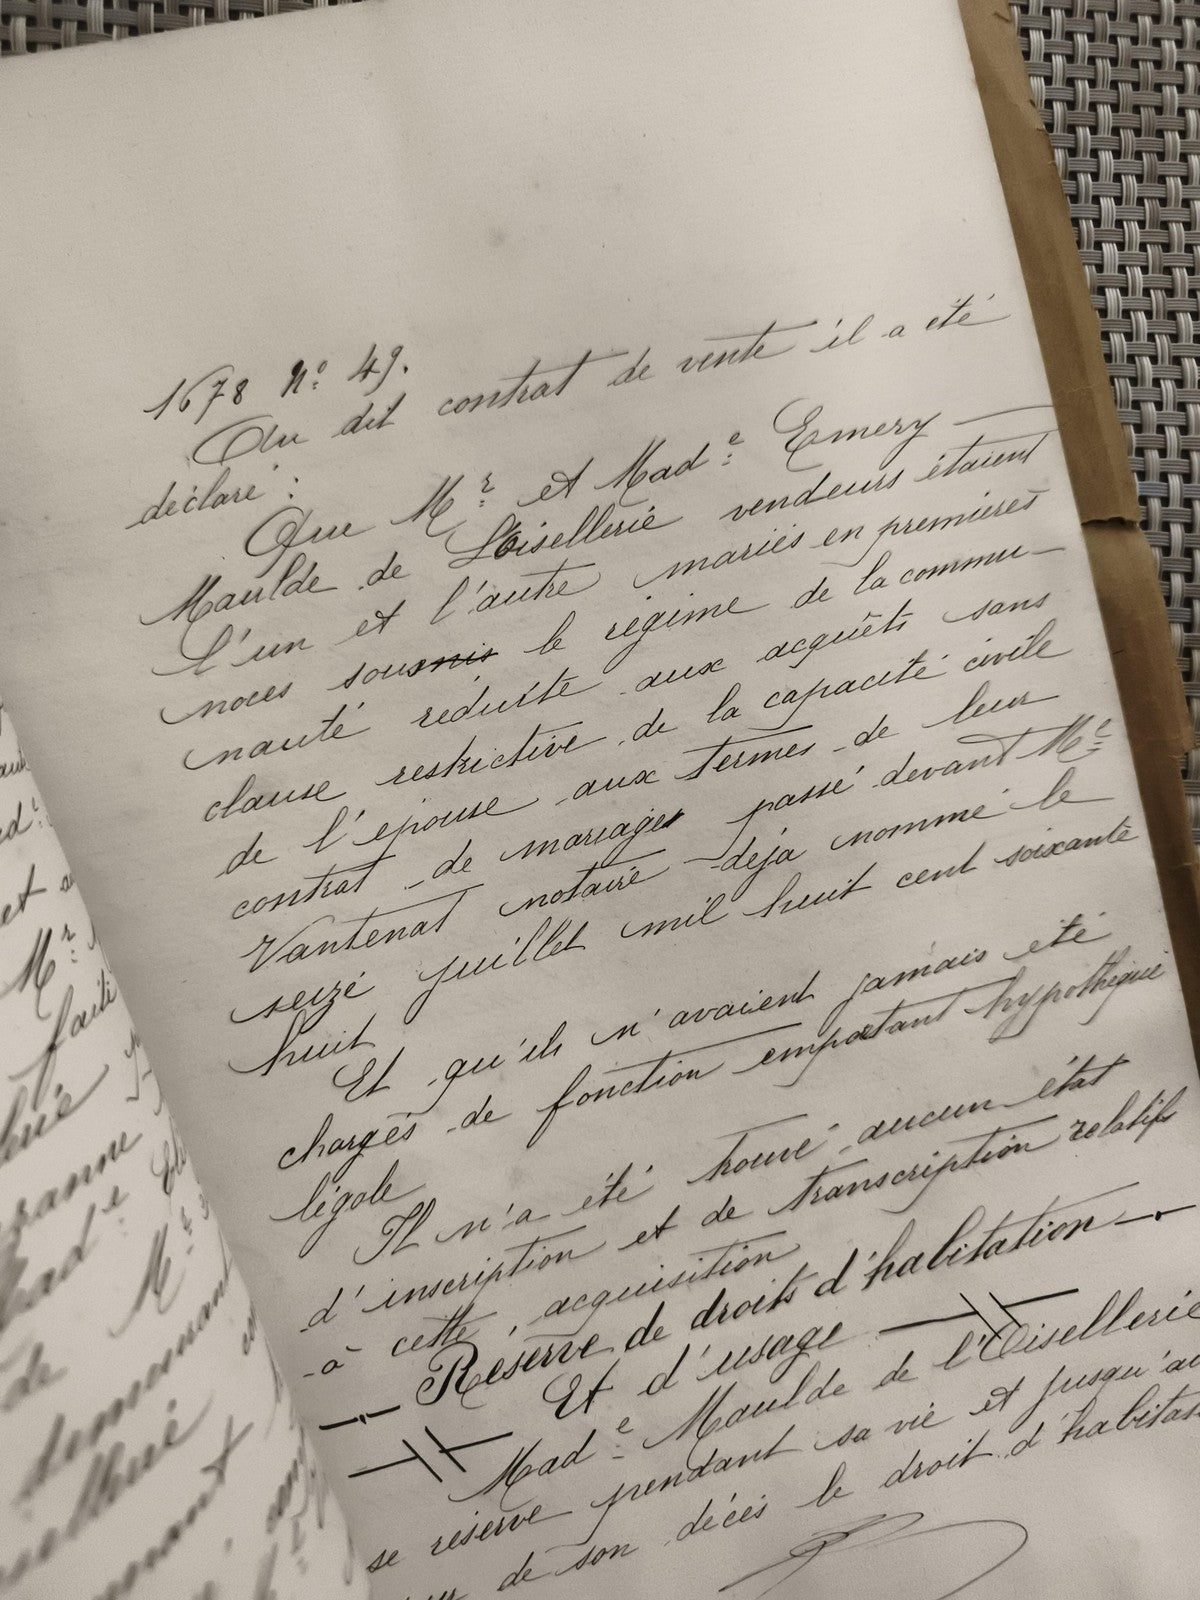 1678 No 49.
Au dit contrat de vente il a été
déclaré :
Que Mr et Made Emery
Maulde de Loisellerie vendeurs étaient
l'un et l'autre mariés en premières
noces soumis le régime de la commu-
nauté réduite aux acquêts sans
clause restrictive de la capacité civile
de l'épouse aux termes de leur
contrat de mariage passé devant Me
Vantenat notaire déjà nommé le
seize juillet mil huit cent soixante
huit
Et qu'ils n'avaient jamais été
chargés de fonction emportant hypothèque
légale
Il n'a été trouvé aucun état
d'inscription et de transcription relatifs
à cette acquisition
Réserve de droits d'habitation
Et d'usage
Made Maulde de l'Oisellerie
se réserve pendant sa vie et jusqu'au
de son décès le droit d'habitat
et a
Mr
Mr
de